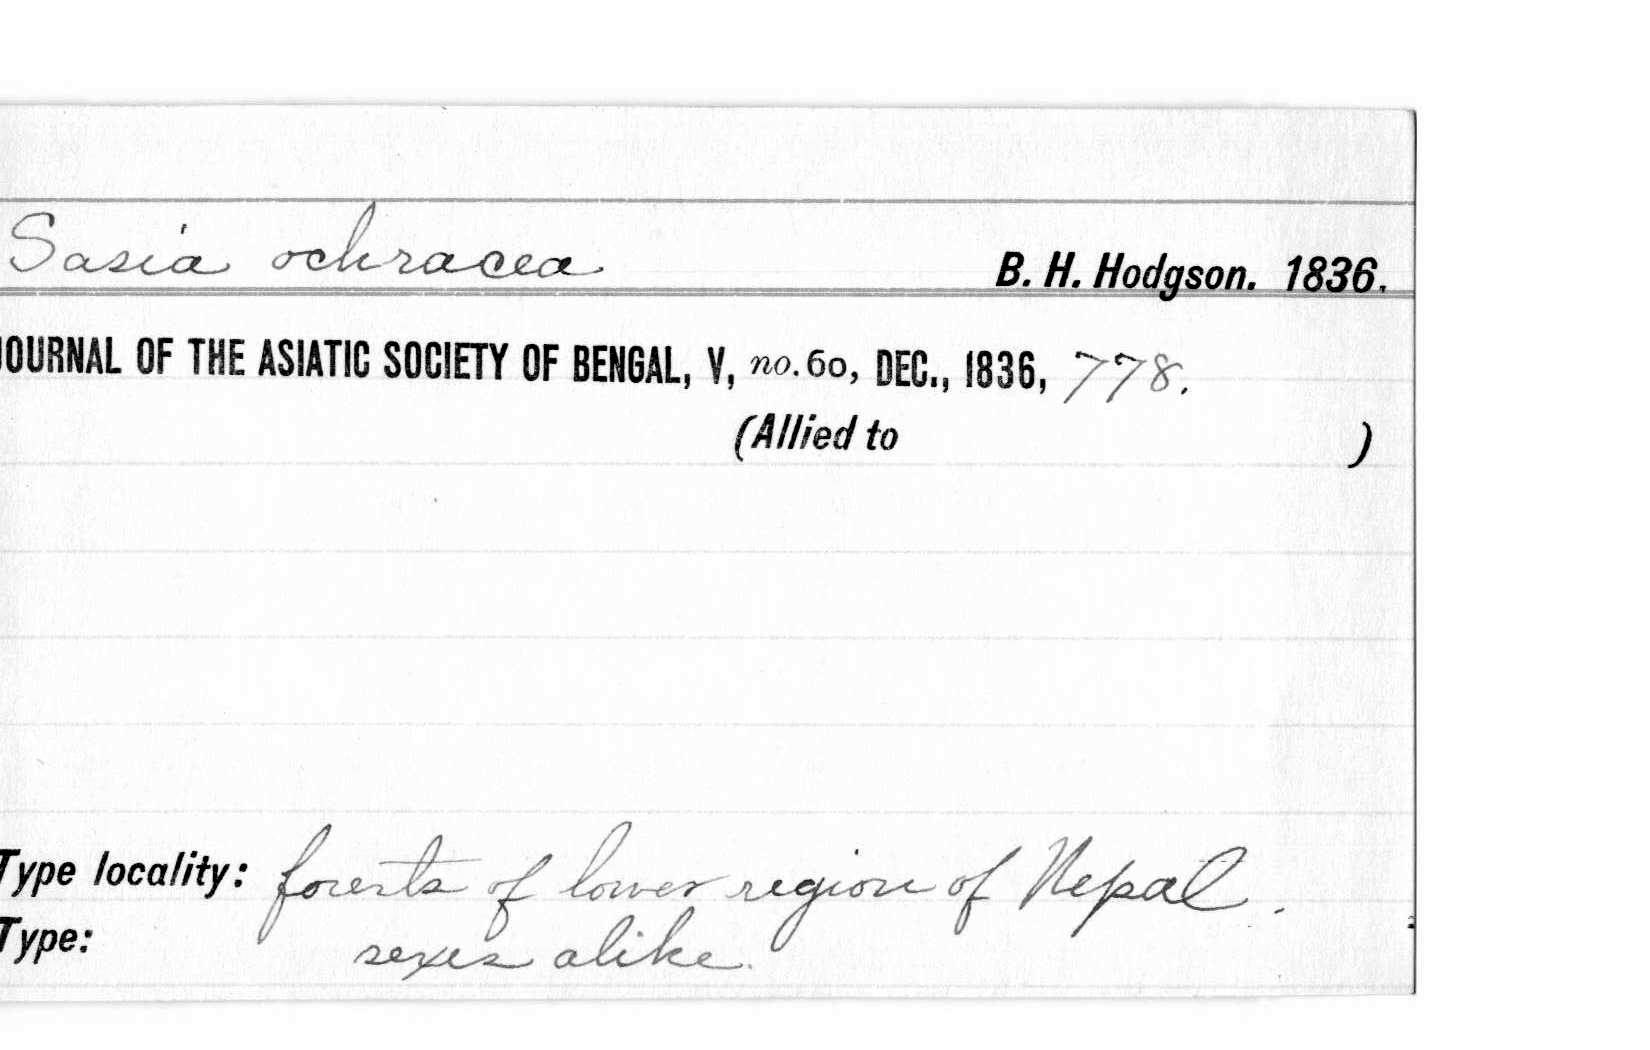 Sasia ochracea B. H. Hodgson. 1836.
JOURNAL OF THE ASIATIC SOCIETY OF BENGAL, V, no. 60, DEC., 1836, 778.
(Allied to )
Type locality: forests of lower region of Nepal.
Type: sexes alike.